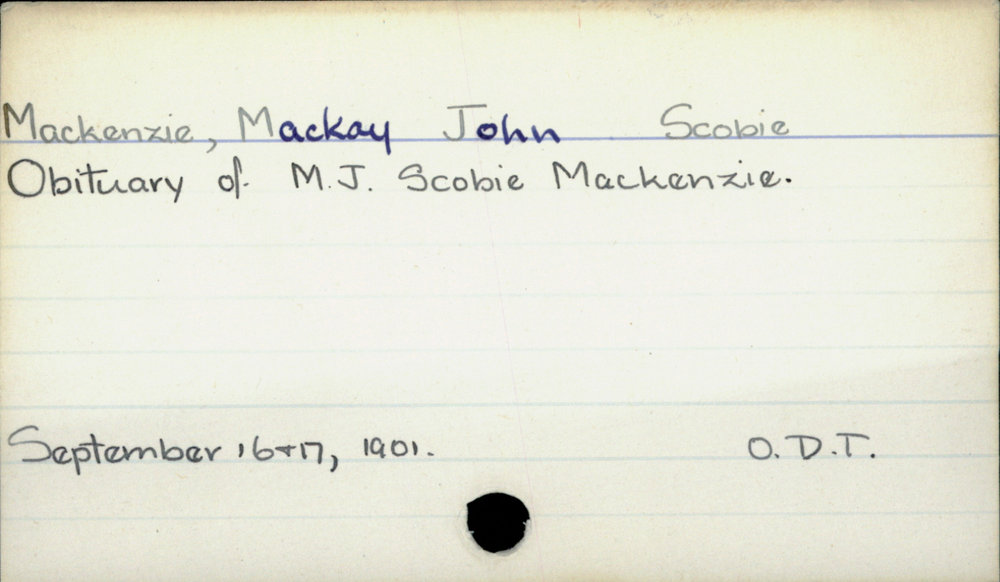 Mackenzie, Mackay John Scobie
Obituary of M.J. Scobie Mackenzie.
September 16+17, 1901. O.D.T.